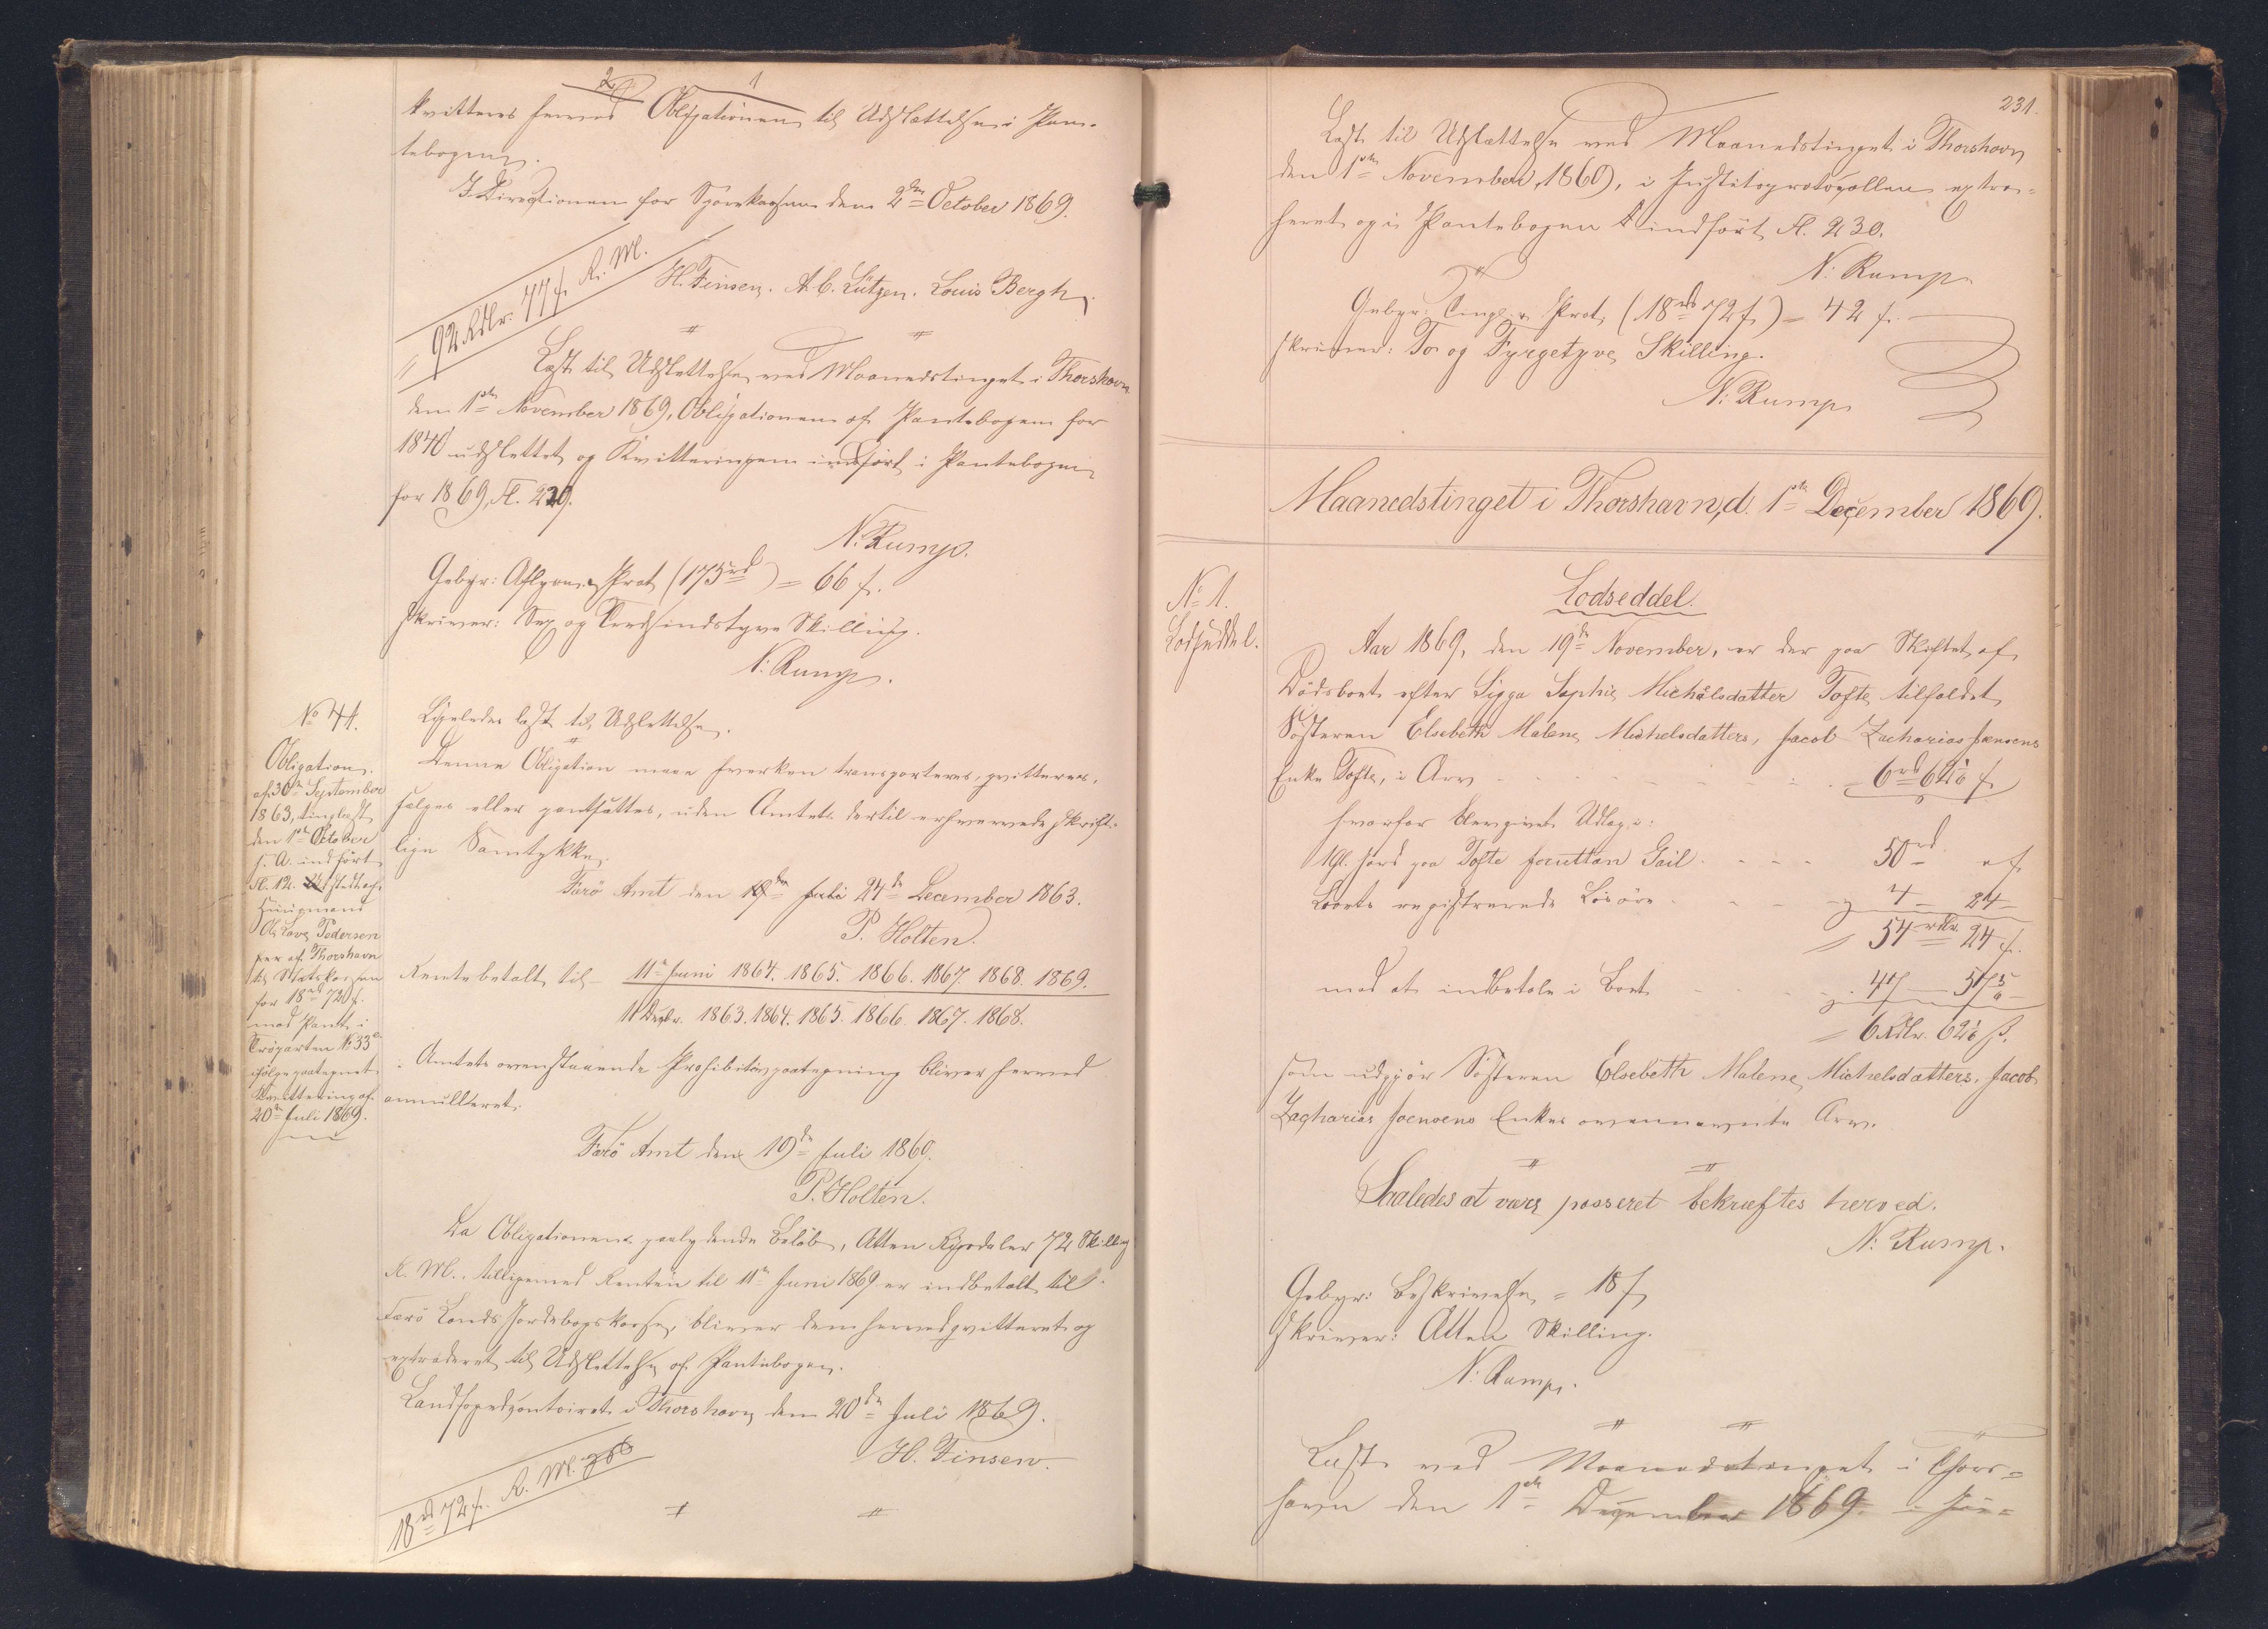 2 1
kvitteres herved Obligationen til Udslettelse i Pan-
tebogen.
I Directionen for Sparekassen den 2den October 1869.
H. Finsen. A. C. Lützen. Louis Bergh.
92 Rdlr. 77 s. R. M.
Læst til Udslettelse ved Maanedstinget i Thorshavn
den 1ste November 1869, Obligationen af Pantebogen for
1840 udslettet og Kvitteringen indført i Pantebogen
for 1869, Fl. 229.
N. Rump.
Gebyr: Aflysn. Prot. (175rd) = 66 s.
skriver: Sex og Tredsindstyve Skilling.
N. Rump.
No 44.
Obligation
af 30te September
1863, tinglæst
den 1ste October
s. A. indført
Fl. 12. udstedt af
Huusmand
Ole Pedersen
af Thorshavn
til Statskassen
for 18rd 72 s.
mod Pant i
Trøparten No 33
ifølge paategnet
Kvittering af
20de Juli 1869.
Ligeledes læst til Udslettelse.
Denne Obligation maae hverken transporteres, qvitteres,
sælges eller pantsættes, uden Amtets dertil erhvervede skrift-
lige Samtykke.
Færø Amt den 24de December 1863.
P. Holten.
Rente betalt til 11te Juni 1864. 1865. 1866. 1867. 1868. 1869.
11 Decbr. 1863. 1864. 1865. 1866. 1867. 1868.
Amtets ovenstaaende Prohibitivpaategning bliver herved
annulleret.
Færö Amt den 19de Juli 1869.
P. Holten.
Da Obligationens paalydende Beløb, Atten Rigsdaler 72 Skilling
R. M., tilligemed Renten til 11te Juni 1869 er indbetalt til
Færö Lands Jordebogskasse, bliver den herved qvitteret og
extraderet til Udslettelse af Pantebogen.
Landfogedcontoiret i Thorshavn den 20de Juli 1869.
H. Finsen.
18rd 72 s. R. M.
231.
Læst til Udslettelse ved Maanedstinget i Thorshavn
den 1ste November 1869, i Justitsprotocollen extra-
heret og i Pantebogen indført Fl. 230.
N. Rump.
Gebyr: Tingl. Prot. (18rd 72 s.) = 42 s.
skriver: To og Fyrgetyve Skilling.
N. Rump.
Maanedstinget i Thorshavn, d. 1ste December 1869.
No 1.
Lodseddel.
Lodseddel.
Aar 1869, den 19de November, er der paa Skiftet af
Dødsboet efter Sigga Sophie Michälsdatter Tofte tilfaldet
Søsteren Elsebeth Malene Michelsdatters, Jacob Zacharias Joensens
Enke Tofte, i Arv 6rd 62 1/6 s.
hvorfor er givet Udlæg i:
1 Gl. Jord paa Tofte foruttan Gail 50rd " s.
Boets registrerede Løsøre 4 - 24 -
= 54 rdlr. 24 s.
mod at indbetale i Boet 47 - 57 5/6 -
= 6 Rdlr. 62 1/6 s.
som udgjør Søsteren Elsebeth Malene Michelsdatters, Jacob
Zacharias Joensens Enkes ovennævnte Arv.
Saaledes at være passeret bekræftes herved.
N. Rump.
Gebyr: Beskrivelse = 18 s
skriver: Atten Skilling.
N. Rump.
Læst ved Maanedstinget i Thors-
havn den 1ste December 1869